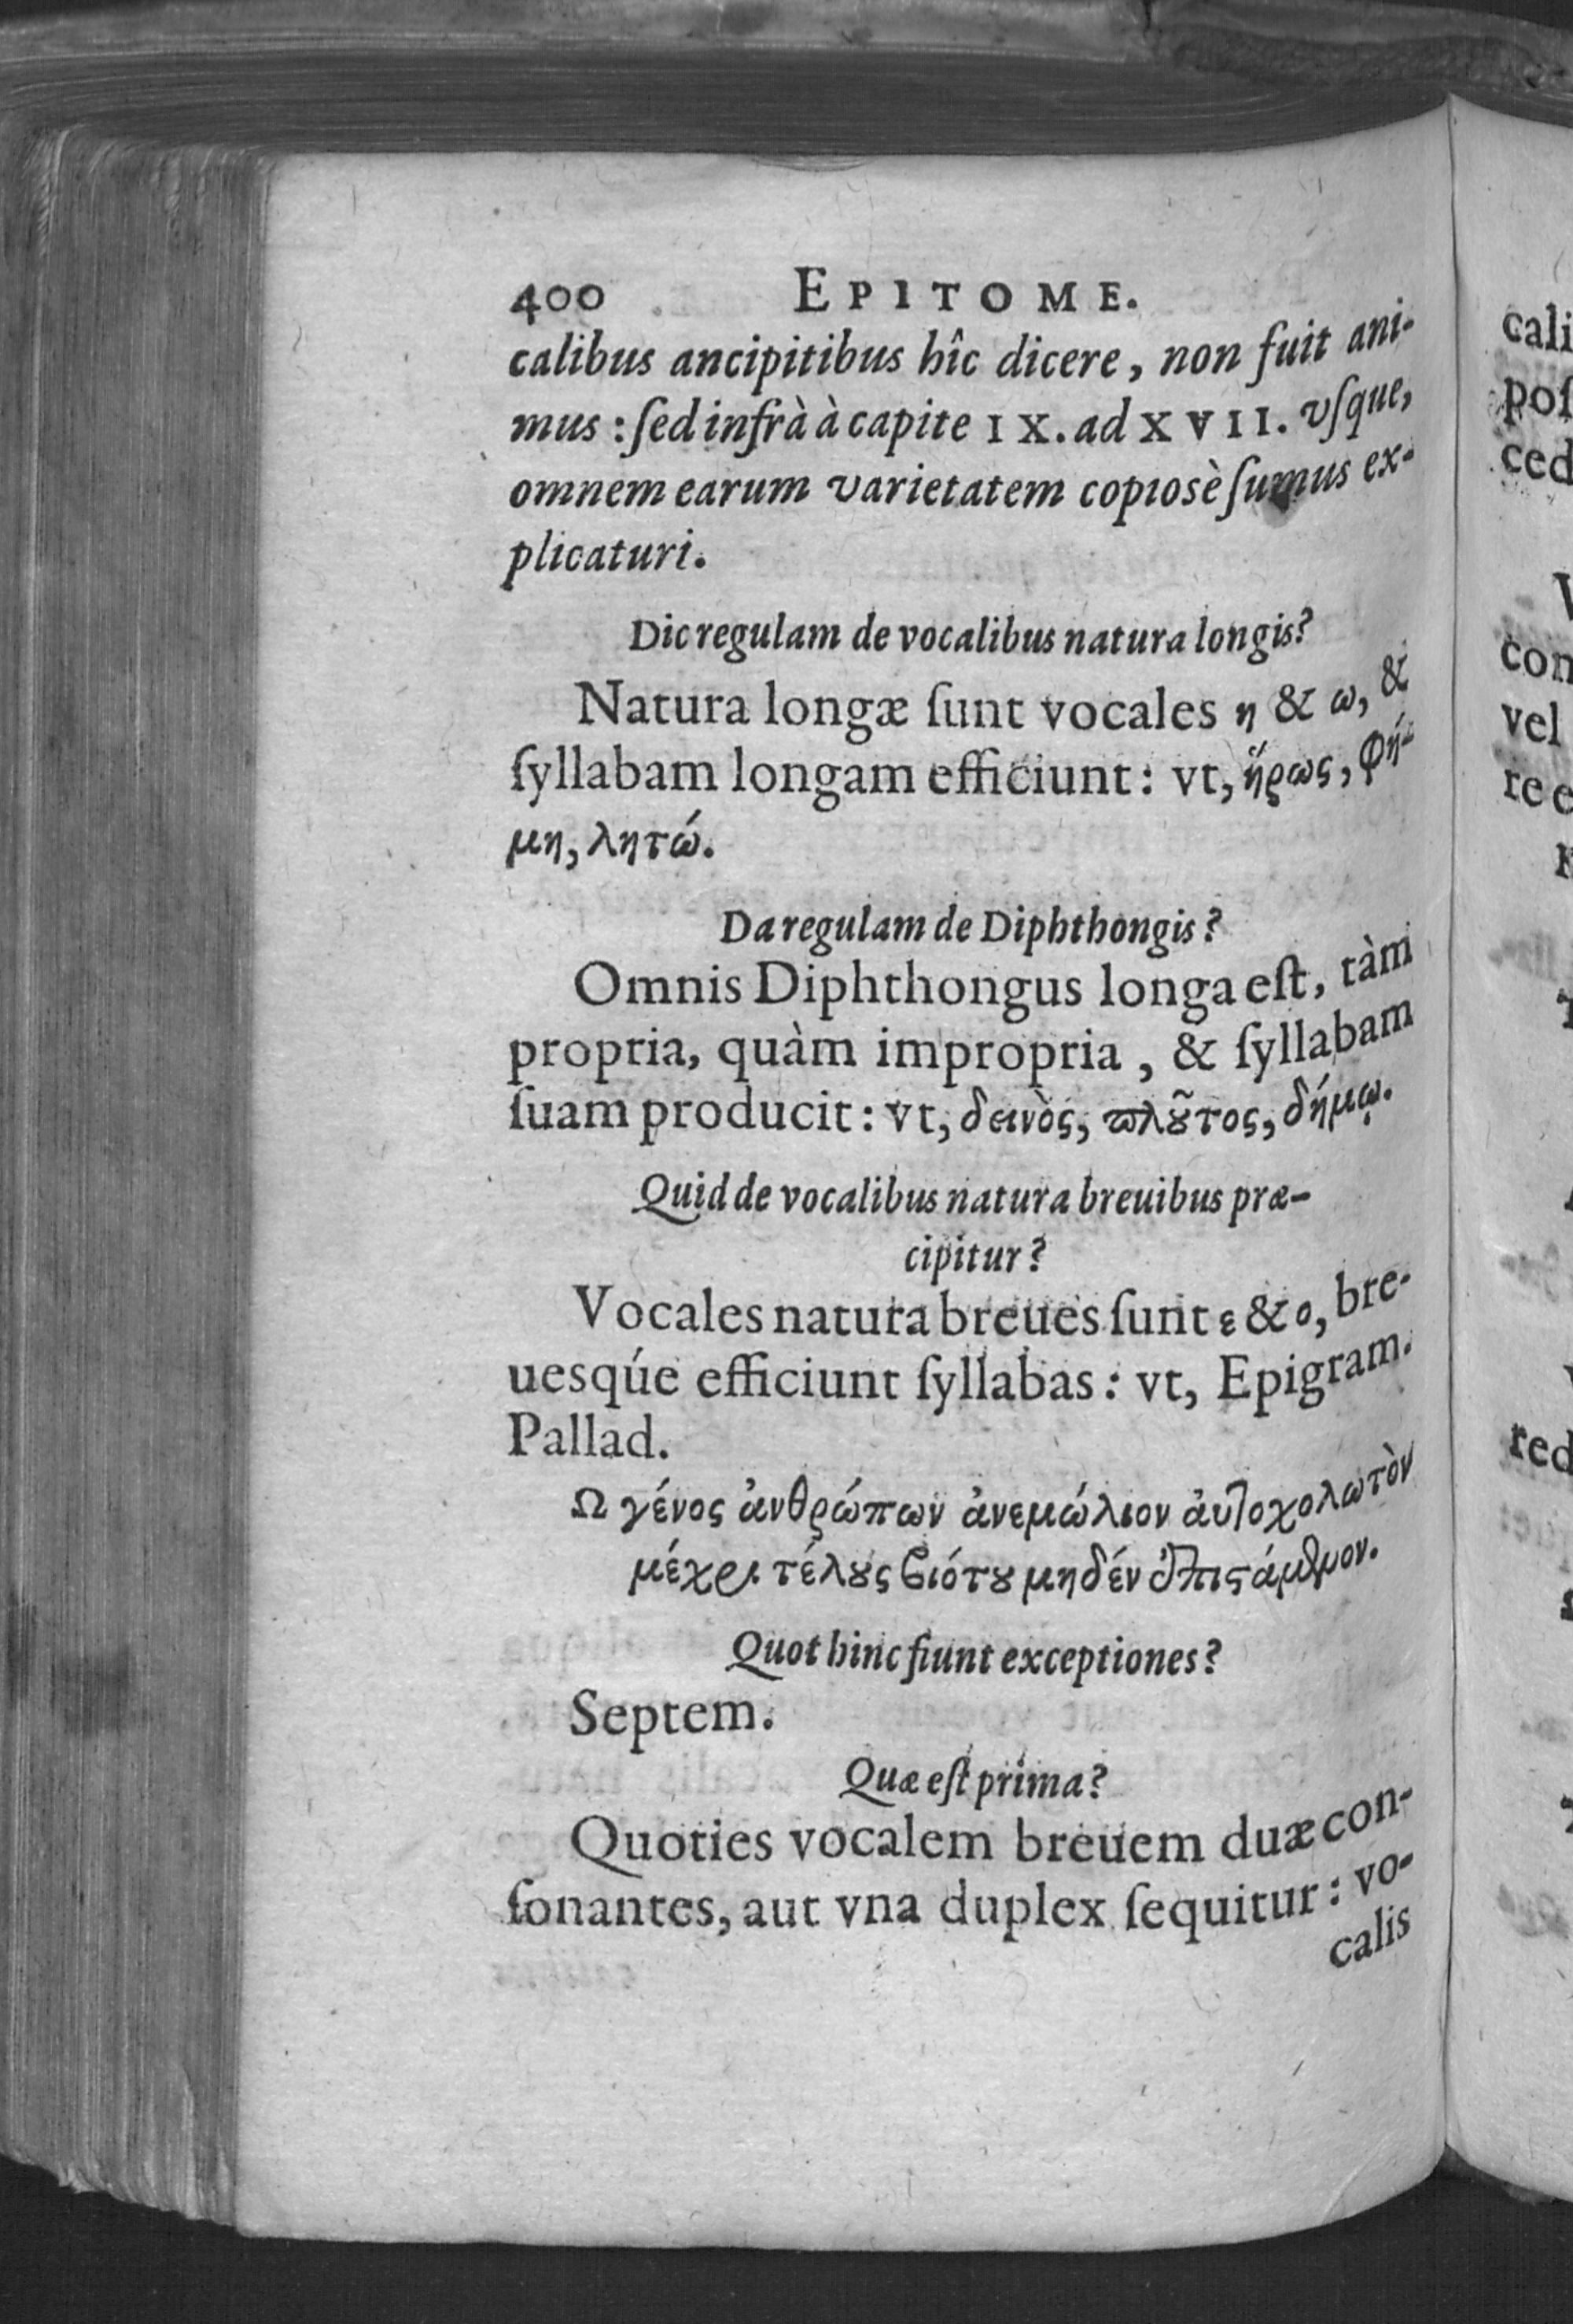 400 EPITOME.
calibus ancipitibus hîc dicere, non fuit ani-
mus: ſed infrà à capite IX. ad XVII. vſque,
omnem earum varietatem copiosè ſumus ex-
plicaturi.
Dic regulam de vocalibus natura longis?
Natura longæ ſunt vocales η & ω, &
ſyllabam longam efficiunt: vt, ἥρως, φή-
μη, λητώ.
Da regulam de Diphthongis?
Omnis Diphthongus longa eſt, tàm
propria, quàm impropria, & ſyllabam
ſuam producit: vt, δεινὸς, πλȣ͂τος, δήμῳ.
Quid de vocalibus natura breuibus præ-
cipitur?
Vocales natura breues ſunt ε & ο, bre-
uesq́ue efficiunt ſyllabas: vt, Epigram.
Pallad.
Ω γένος ἀνθρώπων ἀνεμώλιον ἀυτοχολωτὸν
μέχρι τέλȣς βιότȣ μηδέν ἐπιστάμενον.
Quot hinc fiunt exceptiones?
Septem.
Quæ eſt prima?
Quoties vocalem breuem duæ con-
ſonantes, aut vna duplex ſequitur: vo-
calis
cali
poſ
ced
con
vel
re e
red